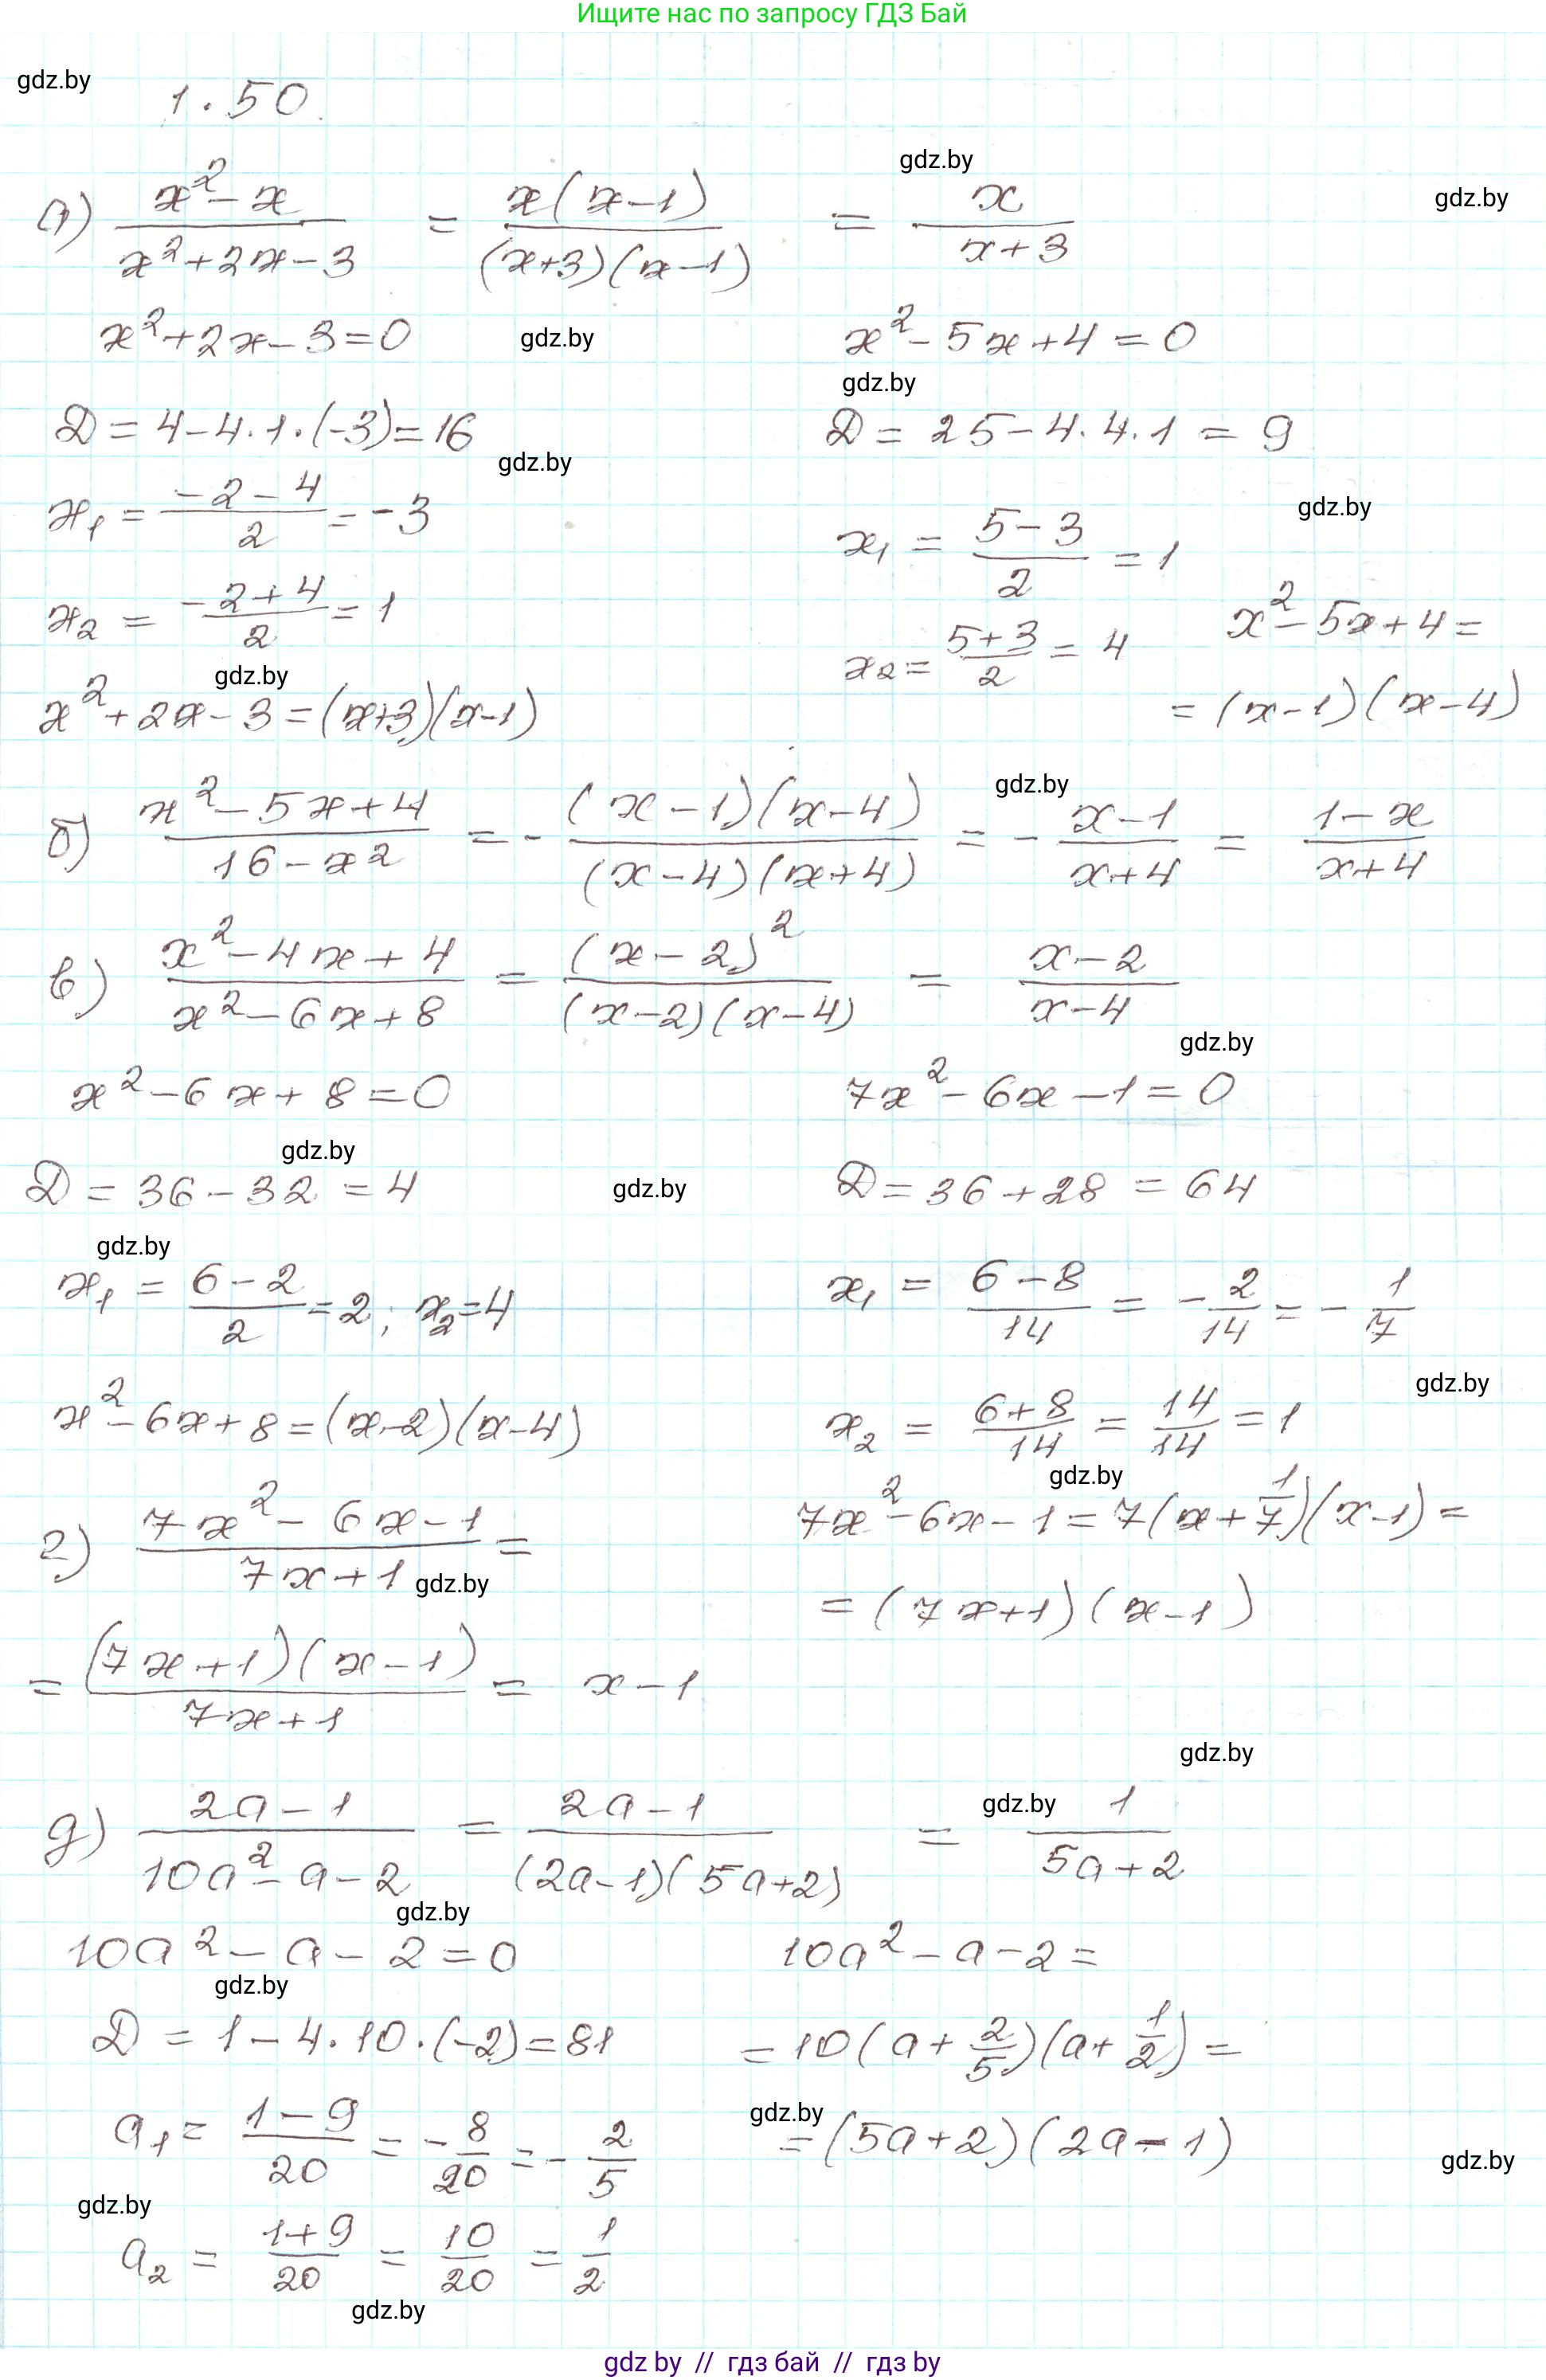 Ищите нас по запросу ГДЗ Бай
gdz.by
1.50.
gdz.by
gdz.by
а) \frac{x^2-x}{x^2+2x-3} = \frac{x(x-1)}{(x+3)(x-1)} = \frac{x}{x+3}
x^2+2x-3=0 gdz.by x^2-5x+4=0
gdz.by
D=4-4·1·(-3)=16 D=25-4·4·1=9
gdz.by
x_1=\frac{-2-4}{2}=-3 x_1=\frac{5-3}{2}=1
gdz.by
x_2=\frac{-2+4}{2}=1 x_2=\frac{5+3}{2}=4 x^2-5x+4=
gdz.by
x^2+2x-3=(x+3)(x-1) =(x-1)(x-4)
gdz.by
б) \frac{x^2-5x+4}{16-x^2} = -\frac{(x-1)(x-4)}{(x-4)(x+4)} = -\frac{x-1}{x+4} = \frac{1-x}{x+4}
в) \frac{x^2-4x+4}{x^2-6x+8} = \frac{(x-2)^2}{(x-2)(x-4)} = \frac{x-2}{x-4}
gdz.by
x^2-6x+8=0 7x^2-6x-1=0
gdz.by
D=36-32=4 gdz.by D=36+28=64
gdz.by
x_1=\frac{6-2}{2}=2; x_2=4 x_1=\frac{6-8}{14}=-\frac{2}{14}=-\frac{1}{7}
gdz.by
x^2-6x+8=(x-2)(x-4) x_2=\frac{6+8}{14}=\frac{14}{14}=1
gdz.by
г) \frac{7x^2-6x-1}{7x+1}= 7x^2-6x-1=7(x+\frac{1}{7})(x-1)=
gdz.by
=(7x+1)(x-1)
=\frac{(7x+1)(x-1)}{7x+1} = x-1
gdz.by
gdz.by
д) \frac{2a-1}{10a^2-a-2} = \frac{2a-1}{(2a-1)(5a+2)} = \frac{1}{5a+2}
gdz.by
10a^2-a-2=0 10a^2-a-2=
gdz.by
D=1-4·10·(-2)=81 =10(a+\frac{2}{5})(a+\frac{1}{2})=
gdz.by
a_1=\frac{1-9}{20}=-\frac{8}{20}=-\frac{2}{5} =(5a+2)(2a-1)
gdz.by
gdz.by
a_2=\frac{1+9}{20}=\frac{10}{20}=\frac{1}{2}
gdz.by
gdz by // гдз бай // гдз by